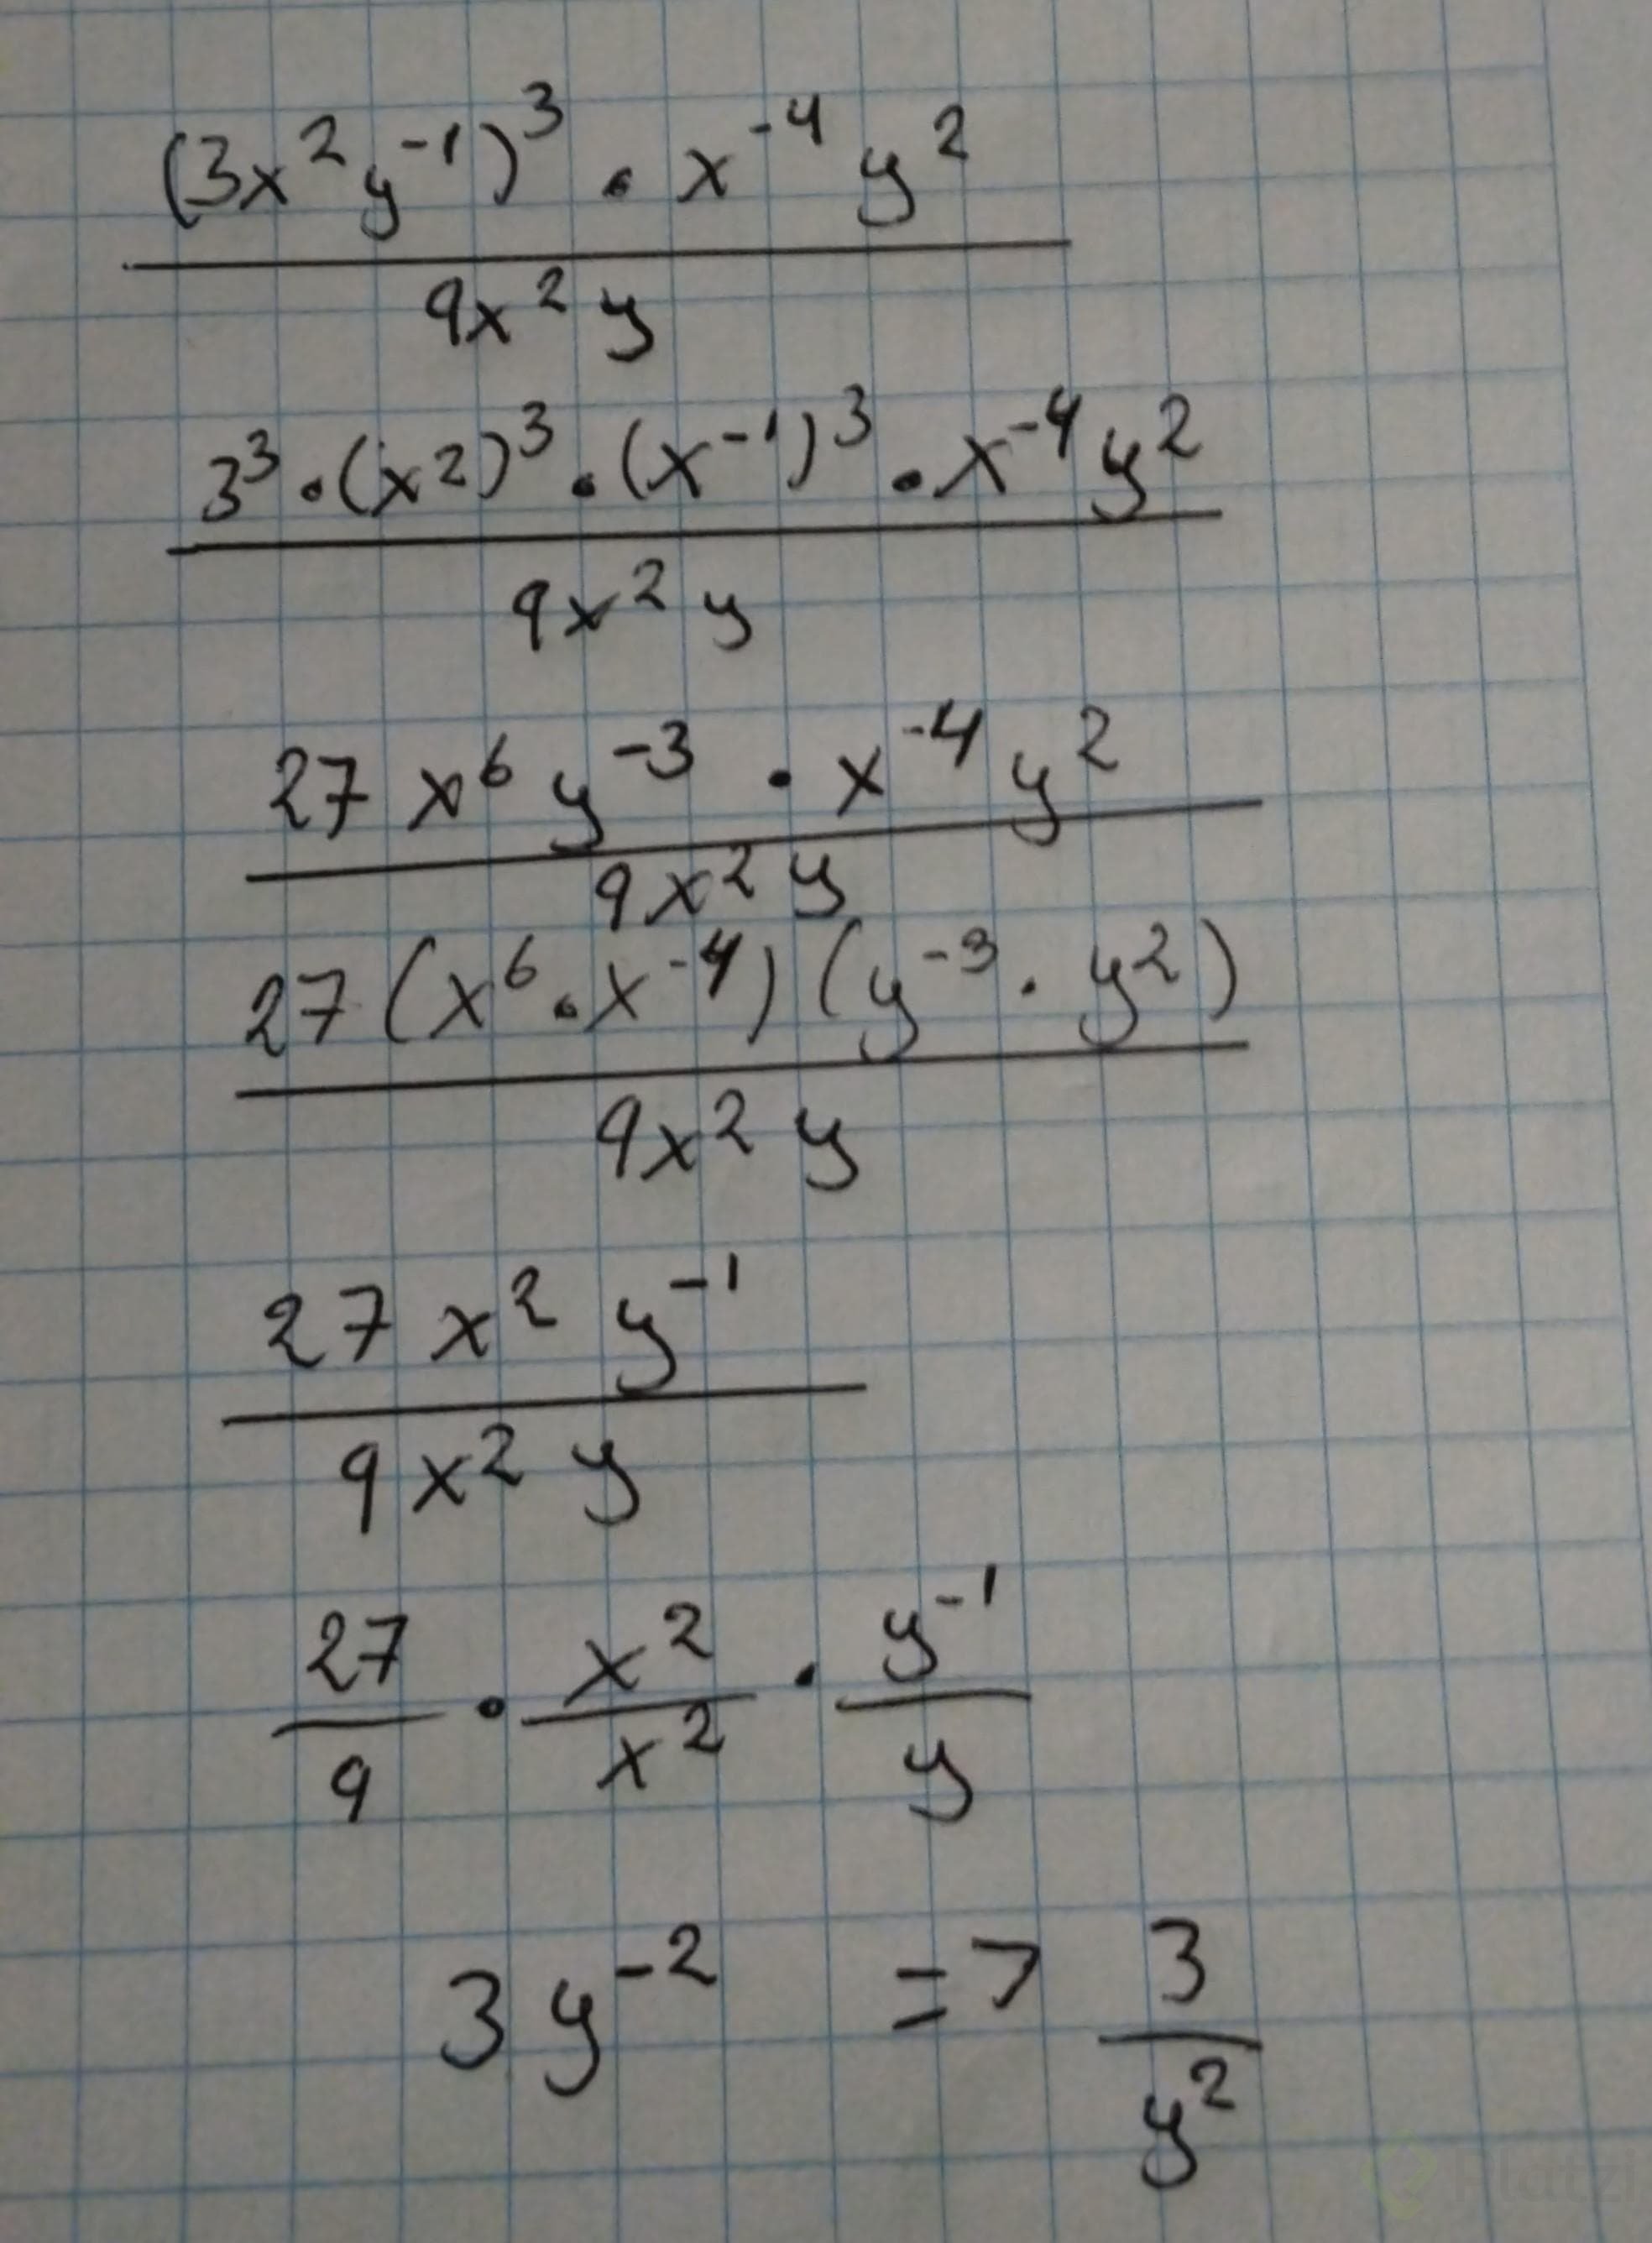 (3x²y⁻¹)³ · x⁻⁴ y²
9x² y
3³ · (x²)³ · (x⁻¹)³ · x⁻⁴ y²
9x² y
27 x⁶ y⁻³ · x⁻⁴ y²
9x² y
27 (x⁶ · x⁻⁴) (y⁻³ · y²)
9x² y
27 x² y⁻¹
9 x² y
27 · x² · y⁻¹
9 x² y
3 y⁻² => 3
y²
Platzi